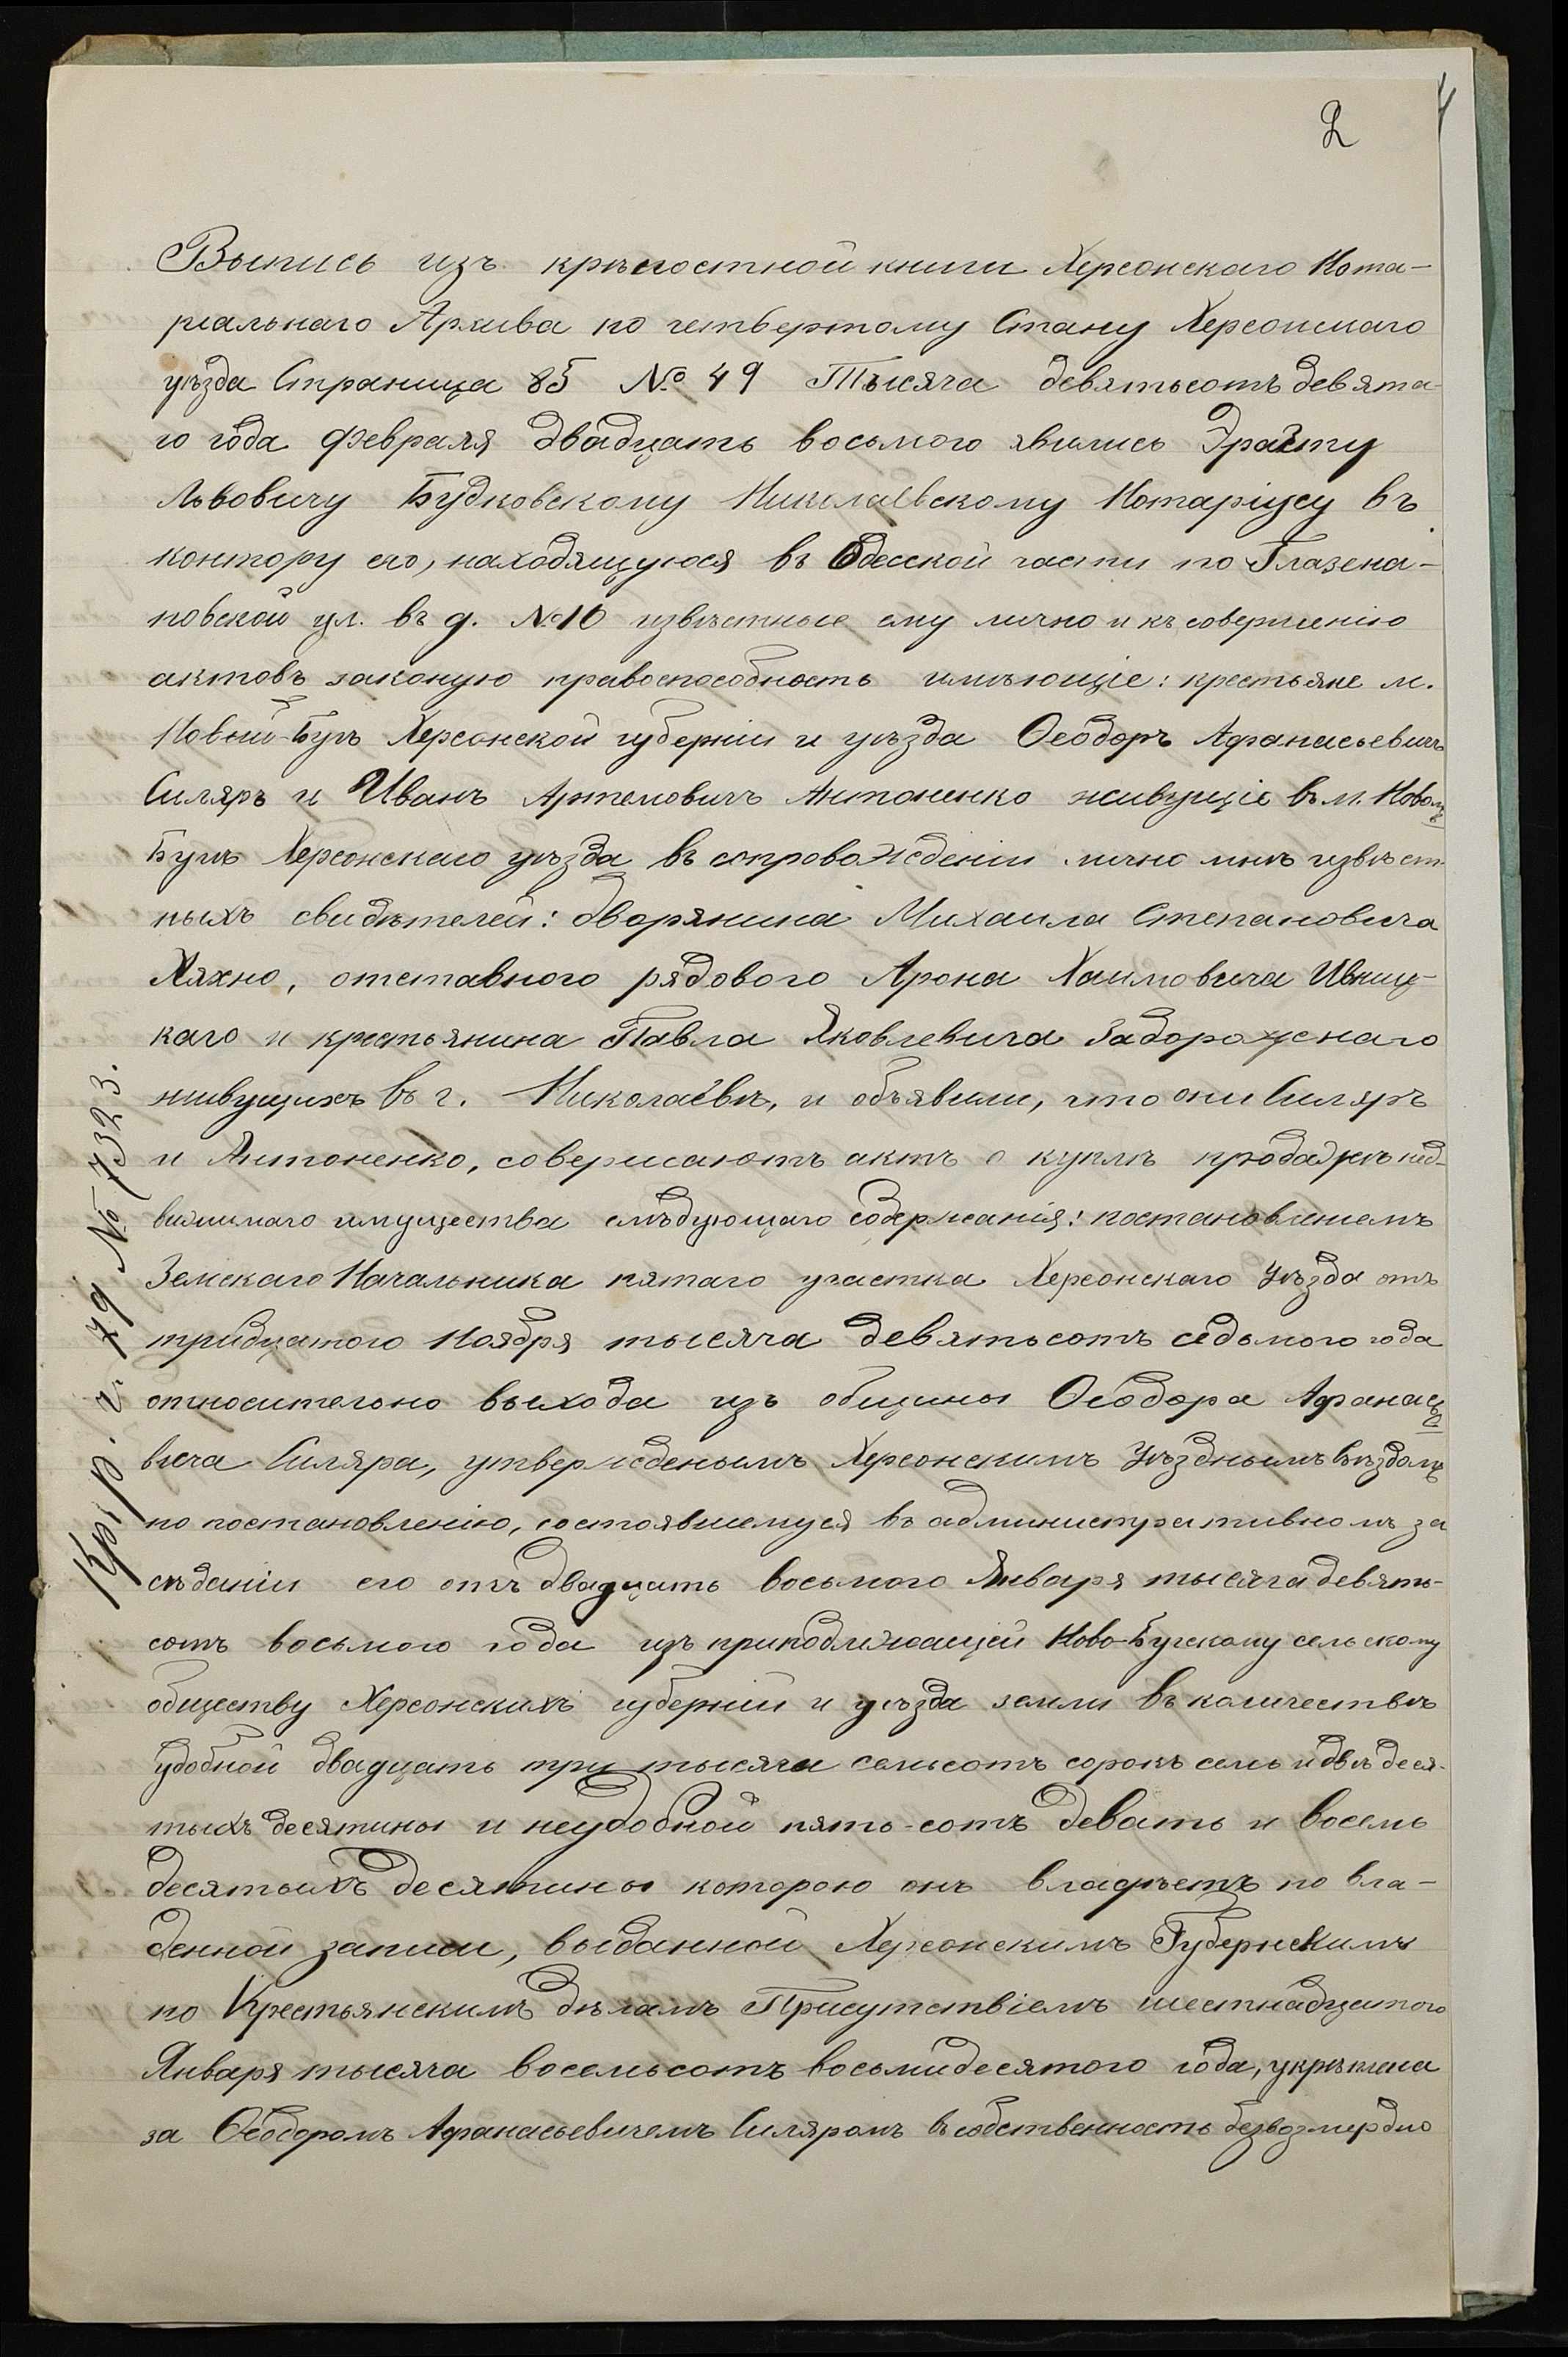 2
Выпись изъ крѣпостной книги Херсонскаго Нота-
ріальнаго Архива по четвертому Стану Херсонскаго
уѣзда Страница 85 № 49 Тысяча девятьсотъ девята-
го года Февраля двадцать восьмого явились
Львовичу Будковскому Николаевскому Нотаріусу въ
контору его, находящуюся въ Одесской части по Глазена-
повской ул. въ д. № 10 извѣстные ему лично и къ совершенію
актовъ законую правоспособность имѣющіе: крестьяне м.
Новый-Бугъ Херсонской губерніи и уѣзда Ѳеодоръ Афанасьевичъ
Силяръ и Иванъ Артемовичъ Антоненко живущіе въ м. Новомъ
Бугѣ Херсонскаго уѣзда въ сопровожденіи лично мнѣ извѣст-
ныхъ свидѣтелей: дворянина Михаила Степановича
Хяхно, отставного рядового Арона Хаимовича Ивниц-
каго и крестьянина Павла Яковлевича Задорожнаго
живущихъ въ г. Николаевѣ, и объявили, что они Силяръ
и Антоненко, совершаютъ актъ о куплѣ продажѣ нед-
вижимаго имущества слѣдующаго содержанія: постановленіемъ
Земскаго Начальника пятаго участка Херсонскаго Уѣзда отъ
тридцатого Ноября тысяча девятьсотъ седьмого года
относительно выхода изъ общины Ѳеодора Афанасье
вича Силяра, утвержденымъ Херсонскимъ Уѣзднымъ Съѣздомъ
по постановленію, состоявшемуся въ административномъ за
сѣданіи его отъ двадцать восьмого Января тысяча девять-
сотъ восьмого года изъ принодлежащей Ново-Бугскому сельскому
обществу Херсонскихъ губерніи и уѣзда земли въ количествѣ
удобной двадцать три тысячи семьсотъ сорокъ семь и двѣ деся-
тыхъ десятины и неудобной пять-сотъ девять и восемь
десятыхъ десятины которою онъ владѣетъ по вла-
денной записи, выданной Херсонскимъ Губернскимъ
по Крестьянскимъ дѣламъ Присутствіемъ шестнадцатого
Января тысяча восемьсотъ восьмидесятого года, укрѣплена
за Ѳеодоромъ Афанасьевичемъ Силяромъ въ собственность безвозмездно
Кр. р. г. 79 № 7323.